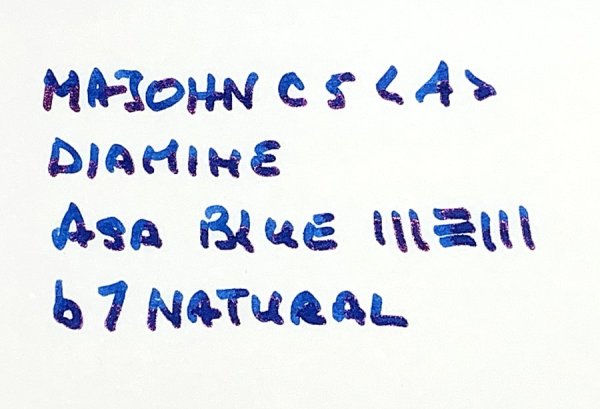 MAJOHN C5 <A>
DIAMINE
ASA BLUE |||≡|||
b7 NATURAL